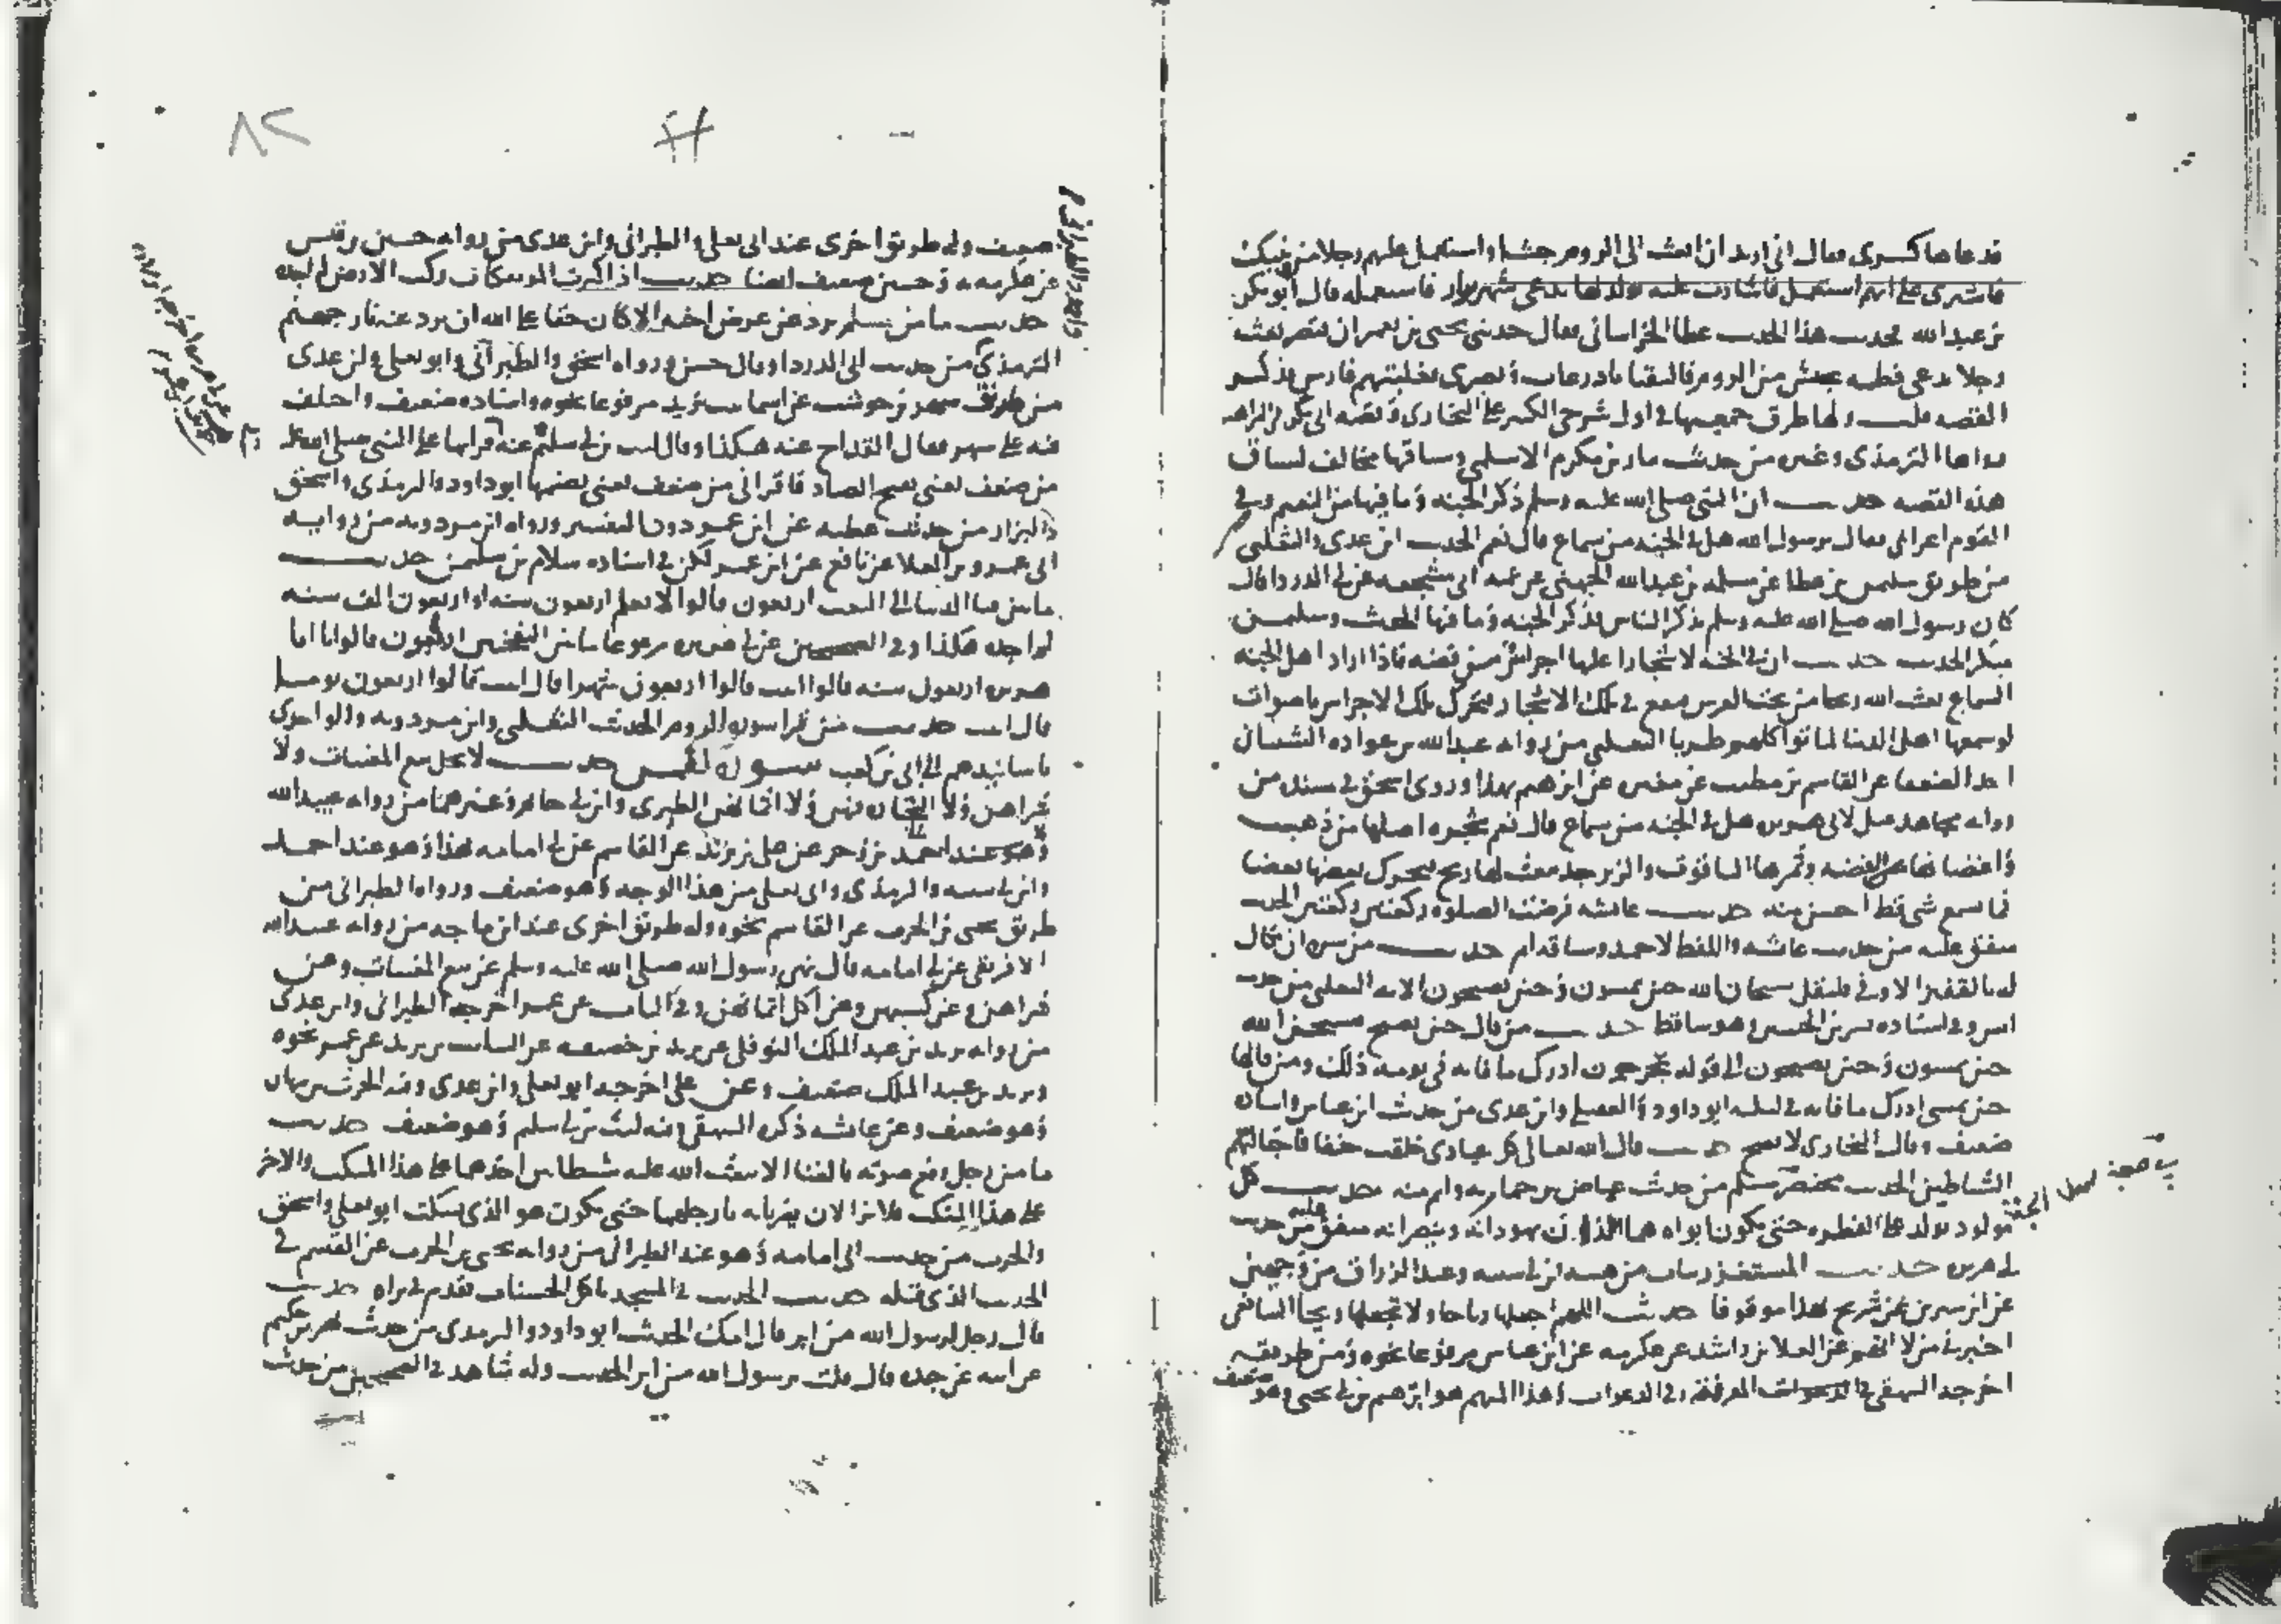 فدعاها كسرى فقال انى اريد ان ابعث الى الروم جيشا واستعمل عليهم رجلا من بنيك
فاشيرى على ايهم استعمل فاشارت عليه بولد لها يدعى شهربراز فاستعمله قال ابو بكر
بن عبد الله فحدثت هذا الحديث عطا الخراسانى فقال حدثنى يحيى بن يعمر ان قيصر بعث
رجلا يدعى قطمه بجيش من الروم فالتقيا باذرعات وبصرى فغلبتهم فارس فذكر
القصه قلت ولها طرق جمعتها فى اول شرحى الكبير على البخارى وقصه ابى بكر فى المراهنه
رواها الترمذى وغيره من حديث نيار بن مكرم الاسلمى وسياقها مخالف لسياق
هذه القصه حديث ان النبى صلى الله عليه وسلم ذكر الجنه وما فيها من النعيم وفى
القوم اعرابى فقال يرسول الله هل فى الجنه من سماع قال نعم الحديث ابن عدى والثعلبى
من طريق سليمن بن عطا عن مسلمه بن عبد الله الجهنى عن عمه ابى مشجعه عن ابى الدردا قال
كان رسول الله صلى الله عليه وسلم يذكر الناس فذكر الجنه وما فيها الحديث وسليمن
منكر الحديث حديث ان فى الجنه لاشجارا عليها اجراس من فضه فاذا اراد اهل الجنه
السماع بعث الله ريحا من تحت العرش فيقع فى تلك الاشجار فتحرك تلك الاجراس باصوات
لو سمعها اهل الدنيا لماتوا كلهم طربا الثعلبى من روايه عبد الله بن عراده الشيبانى
احد الضعفا عن القاسم بن مطيب عن مغيره عن ابرهيم بهذا وروى اسحق فى مسنده من
روايه مجاهد قيل لابى هريره هل فى الجنه من سماع قال نعم شجره اصلها من ذهب
واغصانها من الفضه وثمرها الياقوت والزبرجد يبعث لها ريح فيحرك بعضها بعضا
فما سمع شى قط احسن منه حديث عائشه فرضت الصلوه ركعتين ركعتين الحديث
متفق عليه من حديث عائشه واللفظ لاحمد وساقه اتم حديث من سره ان يكال
له بالقفيز الاوفى فليقل سبحان الله حين تمسون وحين تصبحون الايه الثعلبى من حديث
انس وفى اسناده بشر بن الحسين وهو ساقط حديث من قال حين يصبح فسبحن الله
حين تمسون وحين تصبحون الى قوله تخرجون ادرك ما فاته فى يومه ذلك ومن قالها
حين يمسى ادرك ما فاته فى ليلته ابو داود والعقيلى وابن عدى من حديث ابن عباس واسناده
ضعيف وقال البخارى لا يصح حديث قال الله تعالى كل عبادى خلقت حنفا فاجتالتهم
الشياطين الحديث مختصر مسلم من حديث عياض بن حمار به واتم منه حديث كل
مولود يولد على الفطره حتى يكون ابواه هما اللذان يهودانه وينصرانه متفق عليه من حديث
ابى هريره حديث المستغزر يثاب من هبته ابن ابى شيبه وعبد الرزاق من وجهين
عن ابن سيرين عن شريح بهذا موقوفا حديث اللهم اجعلها رياحا ولا تجعلها ريحا الشافعى
اخبرنى من لا اتهم عن العلا بن راشد عن عكرمه عن ابن عباس مرفوعا نحوه ومن طريقه
اخرجه البيهقى فى الدعوات المعرفه وفى الدعوات وهذا المبهم هو ابرهيم بن ابى يحيى وهو ضعيف
٨٢
ضعيف وله طريق اخرى عند ابى يعلى والطبرانى وابن عدى من روايه حسين بن قيس
عن عكرمه به وحسين ضعيف ايضا حديث
حديث ما من مسلم يرد عن عرض اخيه الا كان حقا على الله ان يرد عنه نار جهنم
الترمذى من حديث ابى الدردا وقال حسن ورواه اسحق والطبرانى وابو يعلى وابن عدى
من طريق شهر بن حوشب عن اسما بنت يزيد مرفوعا نحوه واسناده ضعيف واختلف
فيه على شهر فقال القداح عنه هكذا وقال ليث بن ابى سليم عنه قراتها على النبى صلى الله عليه
من ضعف يعنى بفتح الضاد فاقرانى من ضعف يعنى بضمها ابو داود والترمذى واسحق
والبزار من حديث عطيه عن ابن عمر دون التفسير ورواه ابن مردويه من روايه
ابى عمرو بن العلا عن نافع عن ابن عمر لكن فى اسناده سلام بن سليمن حديث
ما بين فنا الدنيا الى البعث اربعون قالوا لا نعلم اربعون سنه او اربعون الف سنه
لم اجده هكذا وفى الصحيحين عن ابى هريره مرفوعا ما بين النفختين اربعون قالوا يابا
هريره اربعون سنه قال ابيت قالوا اربعون شهرا قال ابيت قالوا اربعون يوما
قال ابيت حديث من قرا سوره الروم الحديث الثعلبى وابن مردويه والواحدى
باسانيدهم الى ابى بن كعب سورة لقمن حديث لا يحل بيع المغنيات ولا
شراهن ولا التجاره فيهن ولا اثمانهن الطبرى وابن ابى حاتم وغيرهما من روايه عبيد الله
وهو عند احمد بن زحر عن على بن يزيد عن القاسم عن ابى امامه بهذا وهو عند احمد
وابن ابى شيبه والترمذى وابى يعلى من هذا الوجه وهو ضعيف ورواه الطبرانى من
طريق يحيى بن الحرث عن القاسم نحوه وله طريق اخرى عند ابن ماجه من روايه عبيد الله
الافريقى عن ابى امامه قال نهى رسول الله صلى الله عليه وسلم عن بيع المغنيات وعن
شراهن وعن كسبهن وعن اكل اثمانهن وفى الباب عن عمر اخرجه الطبرانى وابن عدى
من روايه يزيد بن عبد الملك النوفلى عن يزيد بن خصيفه عن السائب بن يزيد عن عمر نحوه
ويزيد بن عبد الملك ضعيف وعن على اخرجه ابو يعلى وابن عدى وفيه الحرث بن نبهان
وهو ضعيف وعن عائشه ذكره البيهقى وفيه ليث بن ابى سليم وهو ضعيف حديث
ما من رجل رفع صوته بالغنا الا بعث الله عليه شيطانين احدهما على هذا المنكب والاخر
على هذا المنكب فلا يزالان يضربانه بارجلهما حتى يكون هو الذى يسكت ابو يعلى واسحق
والحرث من حديث ابى امامه وهو عند الطبرانى من روايه يحيى بن الحرث عن القسم فى
الحديث الذى قبله حديث الحديث فى المسجد ياكل الحسنات تقدم فى براه حديث
قال رجل يرسول الله من ابر قال امك الحديث ابو داود والترمذى من حديث بهز بن حكيم
عن ابيه عن جده قال قلت يرسول الله من ابر الحديث وله شاهد فى الصحيحين من حديث